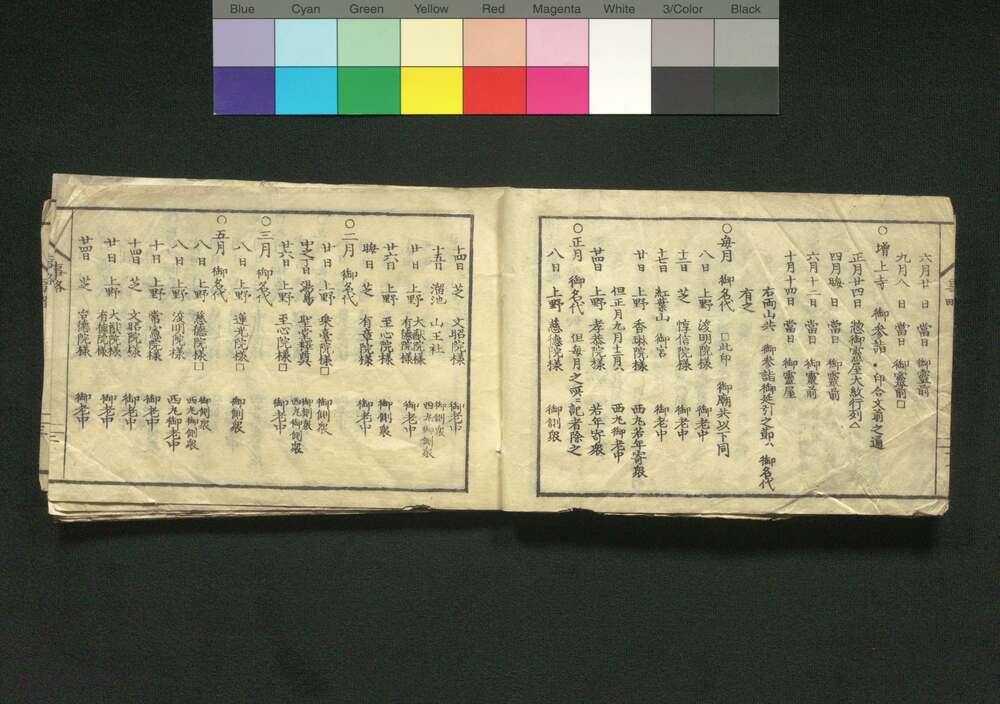 Blue Cyan Green Yellow Red Magenta White 3/Color Black
六月廿日 當日 御靈前
九月八日 當日 御靈前□
○増上寺 御参詣 ・印合文前之通
正月廿四日 惣御靈屋大紋行列
四月晦日 當日 御靈前
六月十二日 當日 御靈前
十月十四日 當日 御靈屋
右両山共 御参詣御延引之節ハ 御名代
有之
○毎月 御名代 □此印 御廟共以下同
八日 上野 浚明院様 御老中
十二日 芝 惇信院様 御老中
十七日 紅葉山 御宮 御老中
廿日 上野 香琳院様 西丸若年寄衆
但正月九月十二月ハ 西丸御老中
廿四日 上野 孝恭院様 若年寄衆
○正月 御名代 但毎月之所ニ記者除之
八日 上野 慈徳院様 御側衆
十四日 芝 文昭院様 御老中
十五日 溜池 山王社 御側衆 西丸御側衆
廿日 上野 大猷院様 有徳院様 御老中
廿六日 上野 至心院様 御側衆
晦日 芝 有章院様 御老中
○二月 御名代
廿日 上野 乗臺院様□ 御側衆
中之丁日 湯島 聖堂釋奠 御側衆 西丸御側衆
廿六日 上野 至心院様□ 御老中
○三月 御名代
八日 上野 蓮光院様□ 御側衆
○五月 御名代
八日 上野 慈徳院様□ 御側衆 西丸御側衆
八日 上野 浚明院様□ 西丸御老中
十日 上野 常憲院様 御老中
十四日 芝 文昭院様 御老中
廿日 上野 大猷院様 有徳院様 御老中
廿四日 芝 台徳院様 御老中